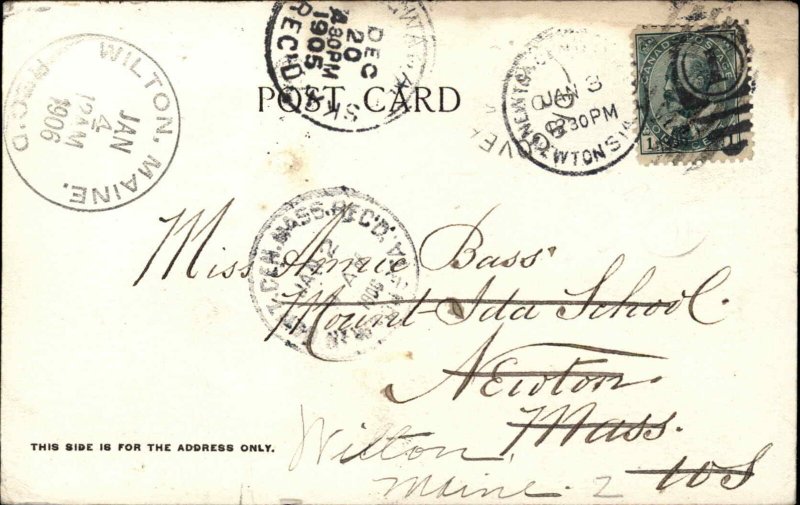 DEC
20
4.30PM
1905
REC'D
POST CARD
CANADA POSTAGE
1 1
NEWTON
JAN 3
30 PM
NEWTON STA
WILTON, MAINE.
JAN
4
12 M
1906
REC'D.
MASS. REC'D.
1906
Miss Annie Bass
Mount Ida School
Newton.
Mass.
U S
Wilton,
Maine.
2
THIS SIDE IS FOR THE ADDRESS ONLY.